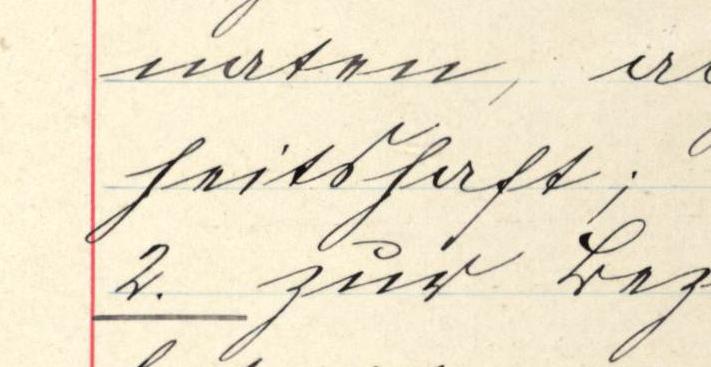 naten, 
heitshaft;
2. zur Bez